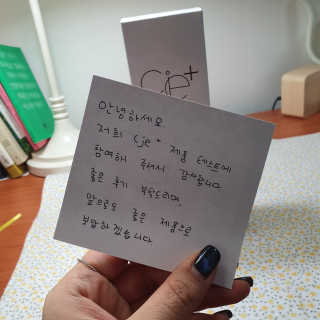 cie+
안녕하세요
저희 cje+ 제품 테스트에
참여해 주셔서 감사합니다
좋은 후기 부탁드리며,
앞으로도 좋은 제품으로
보답하겠습니다